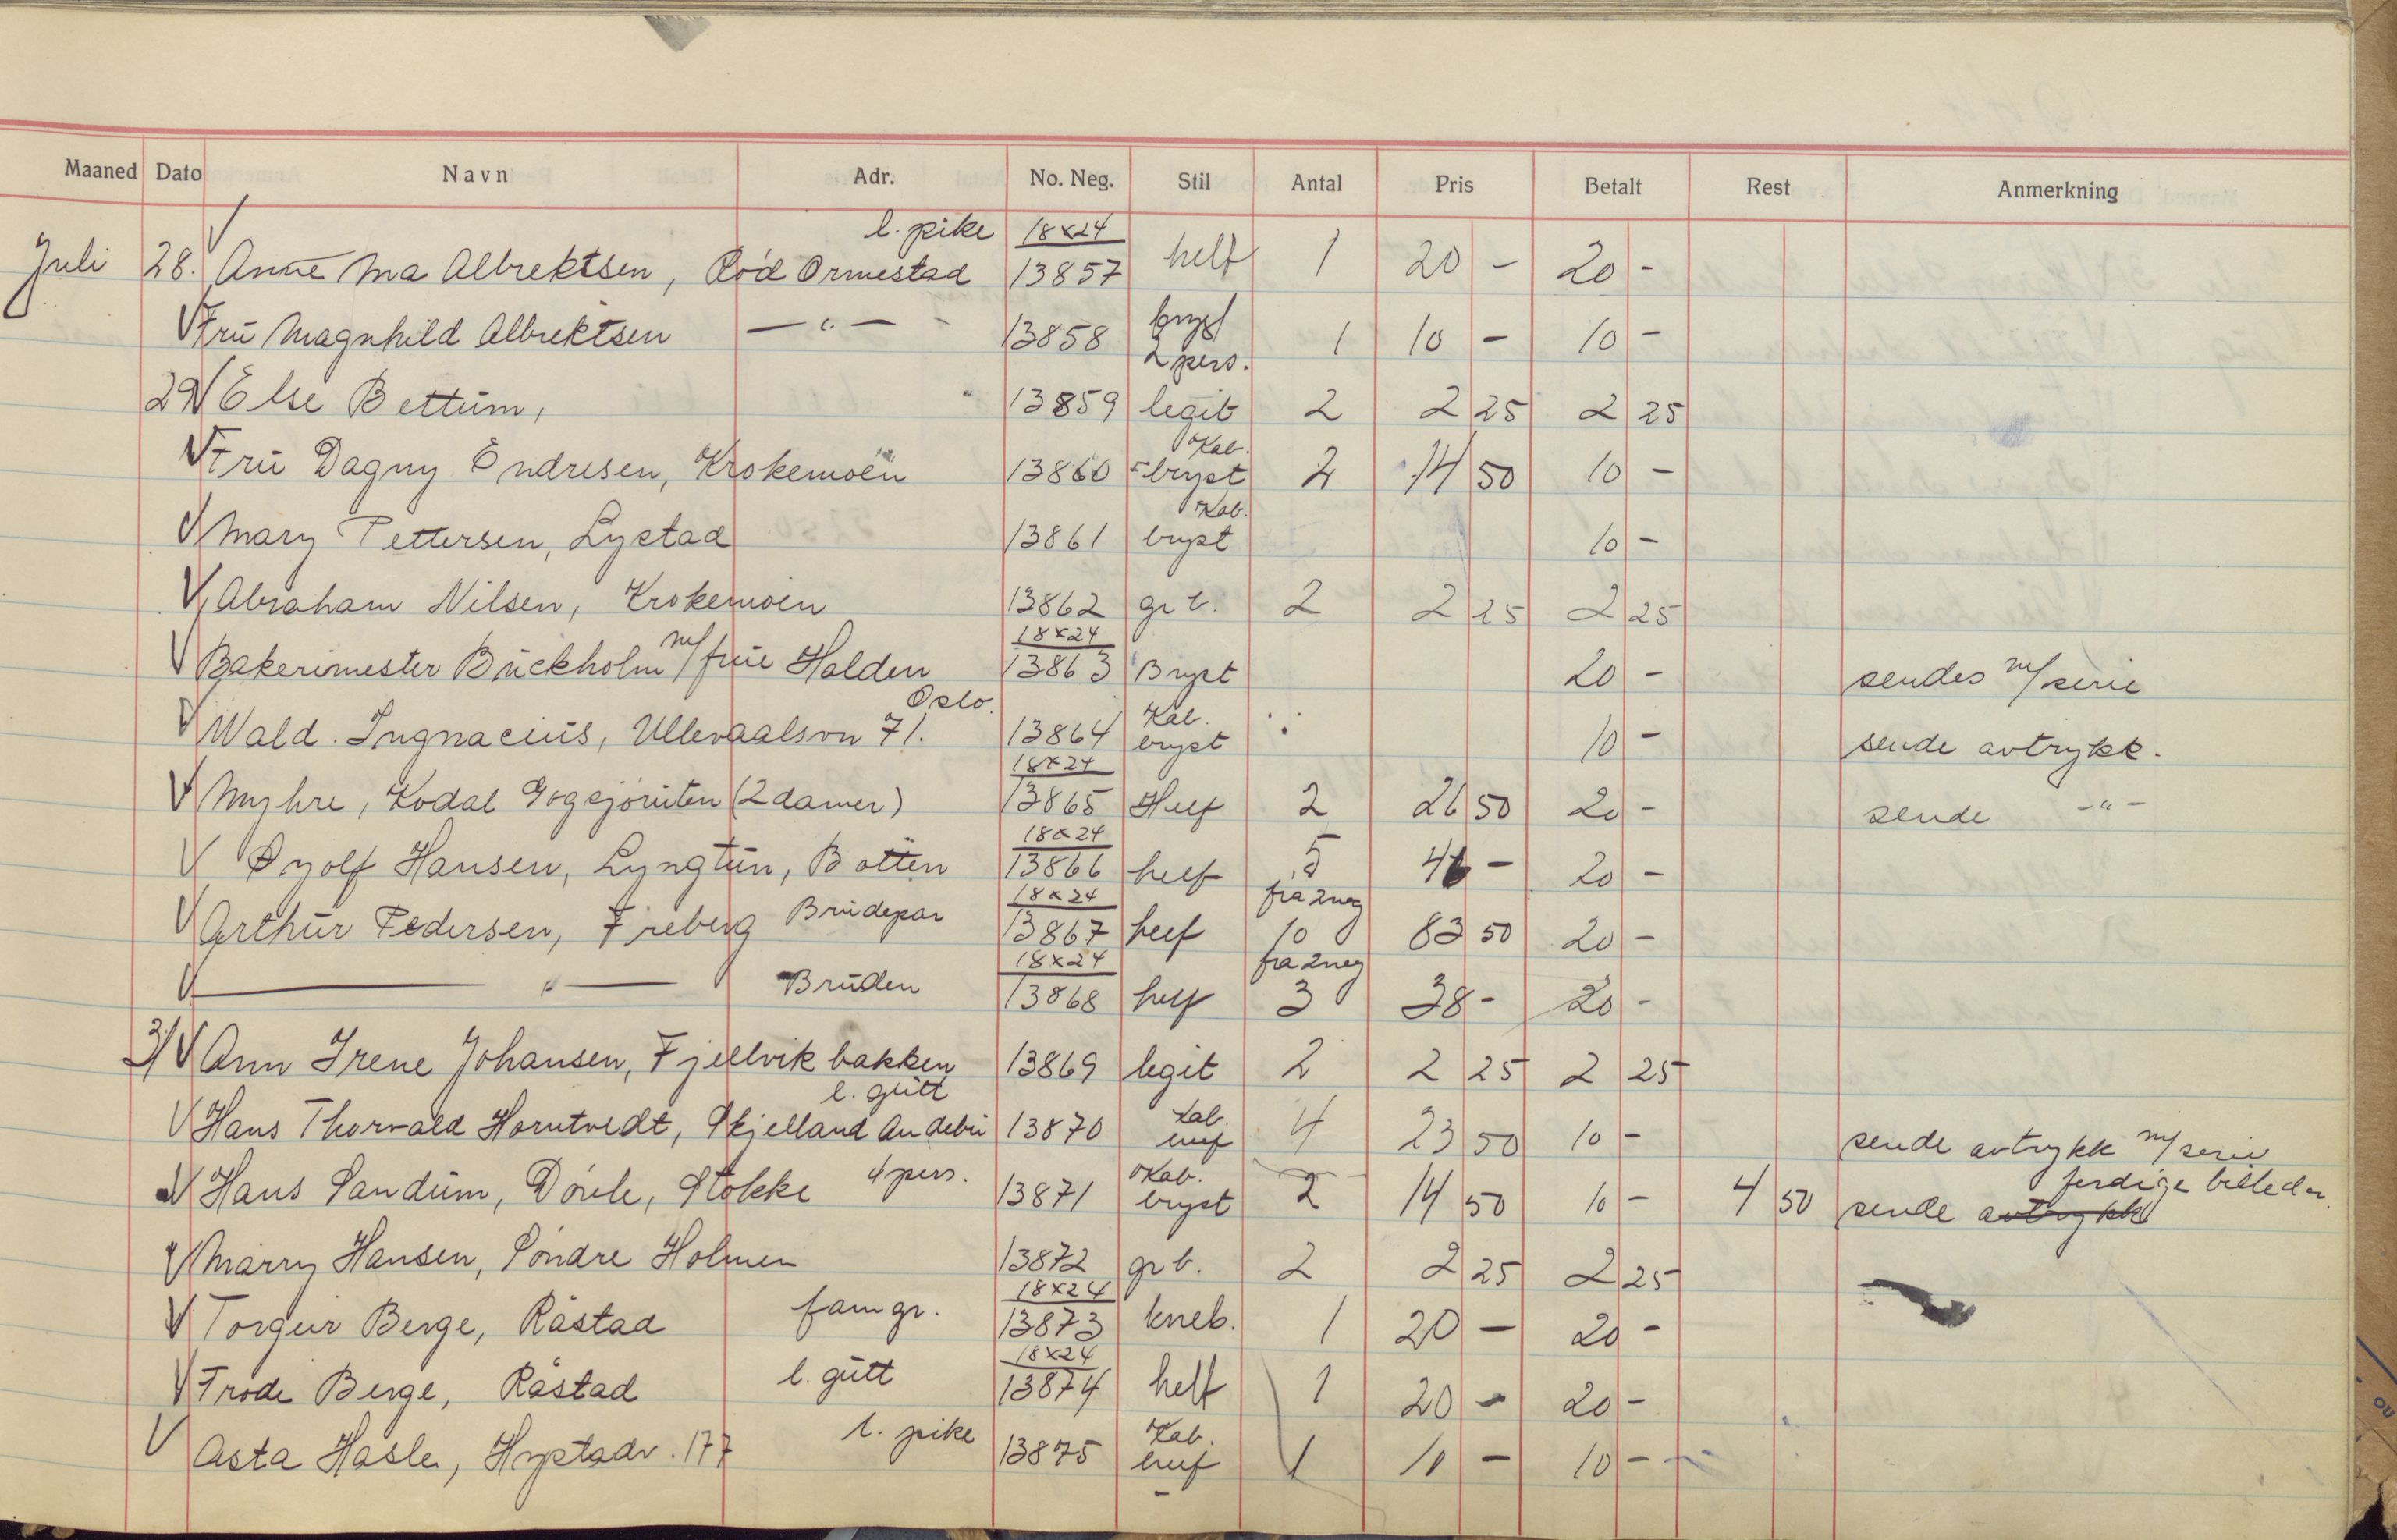 Maaned Dato Navn Adr. No. Neg. Stil Antal Pris Betalt Rest Anmerkning
l. pike 18x24
Juli 28. Anne Ma Albrektsen, Rød Ormestad 13857 helf 1 20 - 20 -
Fru Magnhild Albrektsen — " — 13858 2 pers. 1 10 - 10 -
29 Else Bettum, 13859 legit 2 2 25 2 25
Kab.
Fru Dagny Endresen, Krokemoen 13860 bryst 2 14 50 10 -
Kab.
Mary Pettersen, Lystad 13861 bryst 10 -
Abraham Nilsen, Krokemoen 13862 gr b. 2 2 25 2 25
18x24
Bakerimester Buckholm m/frue Halden 13863 Bryst 20 - sendes m/serie
Oslo. Kab.
Wald. Ingnacius, Ullevaalsvn 71. 13864 bryst 10 - sende avtrykk.
18x24
Myhre, Kodal (2 damer) 13865 Helf 2 26 50 20 - sende -"-
18x24
Øyolf Hansen, Lyngtun, Botten 13866 helf 5 46 - 20 -
18x24 fra 2 neg
Arthur Pedersen, Freberg Brudepar 13867 helf 10 83 50 20 -
18x24 fra 2 neg
— " — Bruden 13868 helf 3 38 - 20 -
31 Ann Irene Johansen, Fjellvik bakken 13869 legit 2 2 25 2 25
l. gutt Kab.
Hans Thorvald Horntvedt, Skjelland Andebu 13870 4 23 50 10 - sende avtrykk m/serie
4 pers. Kab. ferdige billeder
Hans Sandum, Døvle, Stokke 13871 bryst 2 14 50 10 - 4 50 sende avtrykk
Marry Hansen, Søndre Holmen 13872 gr b. 2 2 25 2 25
18x24
Torgeir Berge, Råstad fam gr. 13873 kneb. 1 20 - 20 -
18x24
Frode Berge, Råstad l. gutt 13874 helf 1 20 - 20 -
l. pike Kab.
Asta Hasle, Hystadv. 177 13875 1 10 - 10 -